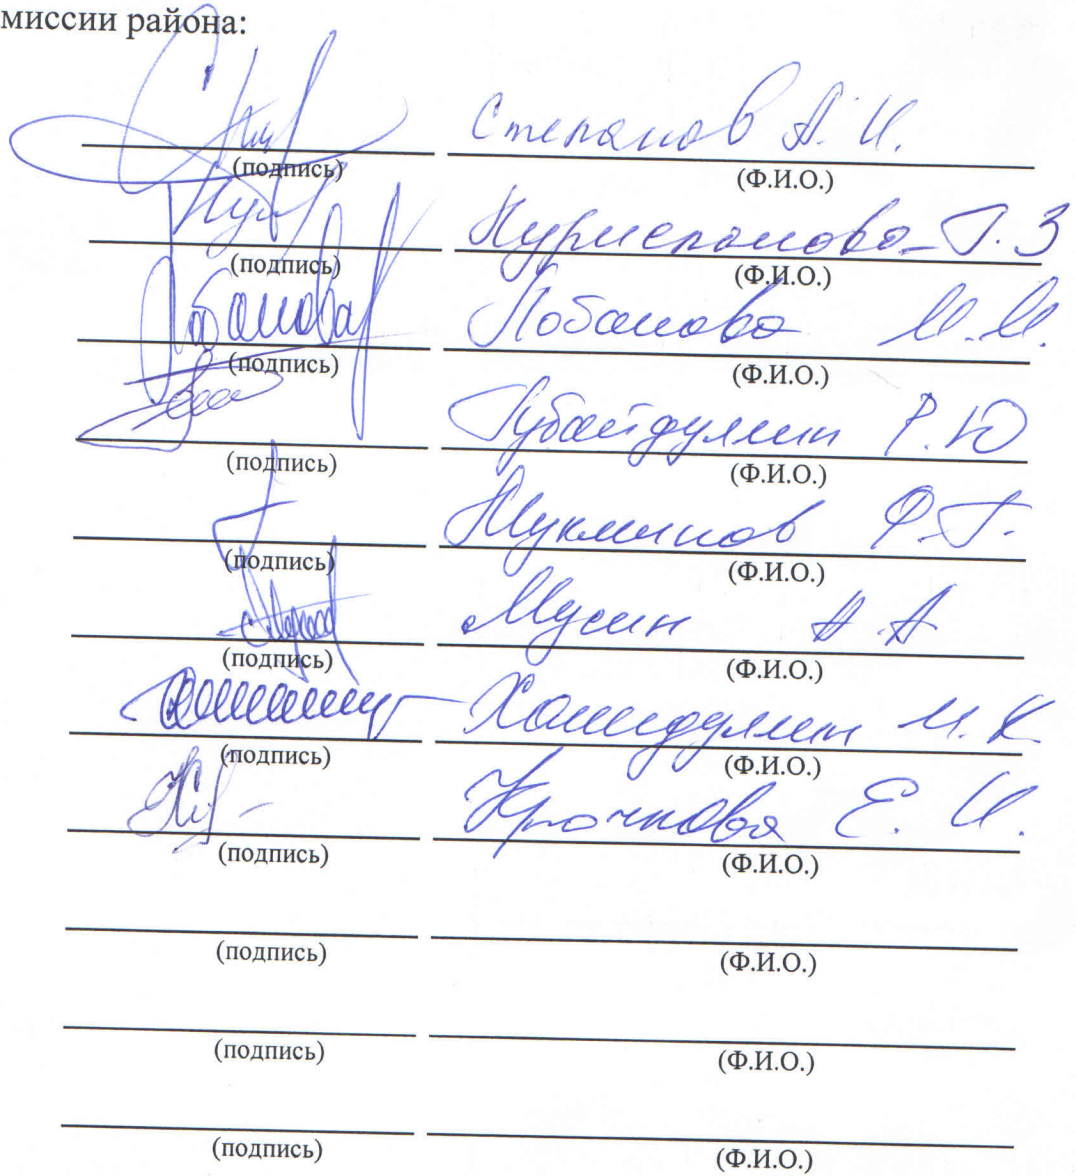 миссии района:
Степанов А. И.
(подпись) (Ф.И.О.)
Нуриспанова Г. З
(подпись) (Ф.И.О.)
Лобанова Лобанова М. М.
(подпись) (Ф.И.О.)
Губайдуллин Р. Ю
(подпись) (Ф.И.О.)
Мукминов Ф. Г.
(подпись) (Ф.И.О.)
Мусин А. А
(подпись) (Ф.И.О.)
И. К
(подпись) (Ф.И.О.)
Крючкова Е. И.
(подпись) (Ф.И.О.)
(подпись) (Ф.И.О.)
(подпись) (Ф.И.О.)
(подпись) (Ф.И.О.)